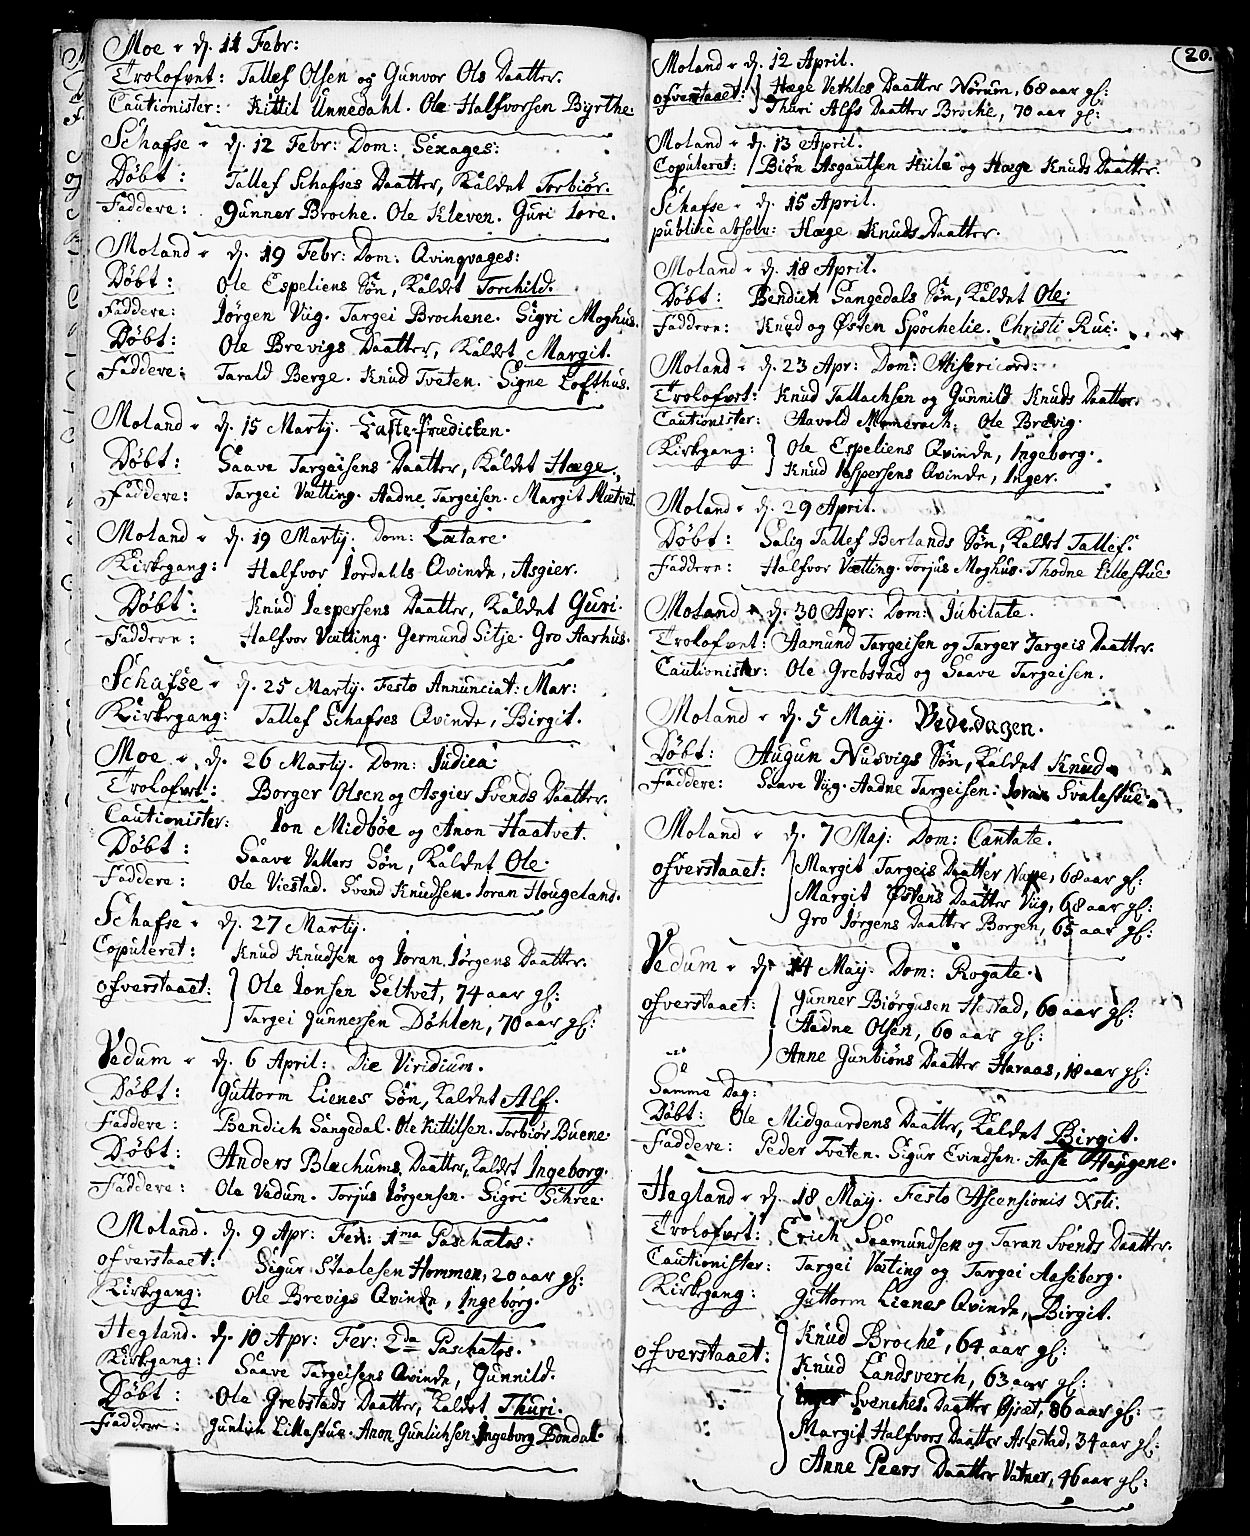 Moe · d. 11 Febr:
Trolofvet: Tallef Olsen og Gunvor Ols Daatter.
Cautionister: Kittil Unnedahl. Ole Halfvorsen Byrthe.
Schafse · d. 12 Febr: Dom: Sexages:
Døbt: Tallef Schafses Daatter, Kaldet Torbiør.
Faddere: Gunner Broche. Ole Kleven. Guri Lore.
Moland · d. 19 Febr: Dom: Qvinqvages:
Døbt: Ole Espeliens Søn, Kaldet Torchild.
Faddere: Jørgen Viig. Targei Brochene. Sigri Moghus.
Døbt: Ole Brevigs Daatter, Kaldet Margit.
Faddere: Tarald Berge. Knud Tveten. Signe Lofthus.
Moland · d. 15 Marty. Faste-Prædicken.
Døbt: Saave Targeisens Daatter, Kaldet Hæge.
Faddere: Targei Vætting. Aadne Targeisen. Margit
Moland · d. 19 Marty. Dom: Lætare.
Kirkegang: Halfvor Jordalls Qvinde, Asgier.
Døbt: Knud Jespersens Daatter, Kaldet Guri.
Faddere: Halfvor Vætting. Germund Sitje. Gro Aarhus.
Schafse · d. 25 Marty. Festo Annunciat: Mar:
Kirkegang: Tallef Schafses Qvinde, Birgit.
Moe · d. 26 Marty. Dom: Judica
Trolofvet: Borger Olsen og Asgier Svends Daatter.
Cautionister: Jon Midbøe og Anon Haatvet.
Døbt: Saave Valters Søn, Kaldet Ole.
Faddere: Ole Viestad. Svend Knudsen. Joran Hougeland.
Schafse · d. 27 Marty.
Copuleret: Knud Knudsen og Joran Jørgens Daatter.
ofverstaaet: Ole Jonsen Seltvet, 74 aar gl:
Targei Gunnersen Døhlen, 70 aar gl:
Vedum · d. 6 April: Die Viridium.
Døbt: Guttorm Lienes Søn, Kaldet Alf.
Faddere: Bendich Sangedal. Ole Kittilsen. Torbiør Buene.
Døbt: Anders Blechums Daatter, Kaldet Ingeborg.
Faddere: Ole Vedum. Torjus Jørgensen. Sigri Schree.
Moland. d. 9 Apr: Fer: 1ma Paschatos:
ofverstaaet: Sigur Staalesen Hommen, 20 aar gl:
Kirkegang: Ole Brevigs Qvinde, Ingeborg.
Hegland. d. 10 Apr: Fer: 2da Paschatos.
Kirkegang: Saave Targeisens Qvinde, Gunnild.
Døbt: Ole Grebstads Daatter, Kaldet Thuri.
Faddere: Gunlich Lillestue. Anon Gunlichsen. Ingeborg Bondal.
20.
Moland · d. 12 April.
ofverstaaet: Hæge Vethles Daatter Norum, 68 aar gl:
Thuri Alfs Daatter Broche, 70 aar gl:
Moland · d. 13 April.
Copuleret: Biøn Asgautsen Hiile og Hæge Knuds Daatter.
Schafse · d. 15 April.
publice absolv: Hæge Knuds Daatter.
Moland · d. 18 April.
Døbt: Bendich Sangedals Søn, Kaldet Ole.
Faddere: Knud og Østen Spochelie. Christi Rue.
Moland · d. 23 Apr: Dom: Misericord:
Trolofvet: Knud Tallachsen og Gunnild Knuds Daatter.
Cautionister: Aavold Momrach. Ole Brevig.
Kirkegang: Ole Espeliens Qvinde, Ingeborg.
Knud Jespersens Qvinde, Inger.
Moland · d. 29 April.
Døbt: Salig Tallef Berlands Søn, Kaldet Tallef.
Faddere: Halfvor Vætting. Torjus Moghus. Thodne Lillestue.
Moland · d. 30 Apr: Dom: Jubilate.
Trolofvet: Aamund Targeisen og Targer Targeis Daatter.
Cautionister: Ole Grebstad og Saave Targeisen.
Moland · d. 5 May. Bededagen.
Døbt: Augun Nusvigs Søn, Kaldet Knud.
Faddere: Saave Viig. Aadne Targeisen. Joran Svalestue.
Moland · d. 7 Maj: Dom: Cantate.
ofverstaaet: Margit Targeis Daatter 68 aar gl:
Margit Østens Daatter Viig, 68 aar gl:
Gro Jørgens Daatter Borgen, 65 aar gl:
Vedum · d. 14 May. Dom: Rogate.
ofverstaaet: Gunner Biørgusen Hestad, 60 aar gl:
Aadne Olsen, 60 aar gl:
Anne Gunbiøns Daatter Haraas, 18 aar gl:
Samme Dag:
Døbt: Ole Midgaardens Daatter, Kaldet Birgit.
Faddere: Peder Tveten. Sigur Evindsen. Aase Haugene.
Hegland · d. 18 May. Festo Ascensionis Xsti.
Trolofvet: Erich Saamundsen og Taran Svends Daatter.
Cautionister: Targei Væting og Targei Aaseberg.
Kirkegang: Guttorm Lienes Qvinde, Birgit.
ofverstaaet: Knud Broche, 64 aar gl:
Knud Landsverch, 63 aar gl:
Inger Svenches Daatter 86 aar gl:
Margit Halfvors Daatter Aslestad, 34 aar gl:
Anne Peers Daatter Vatner, 46 aar gl: